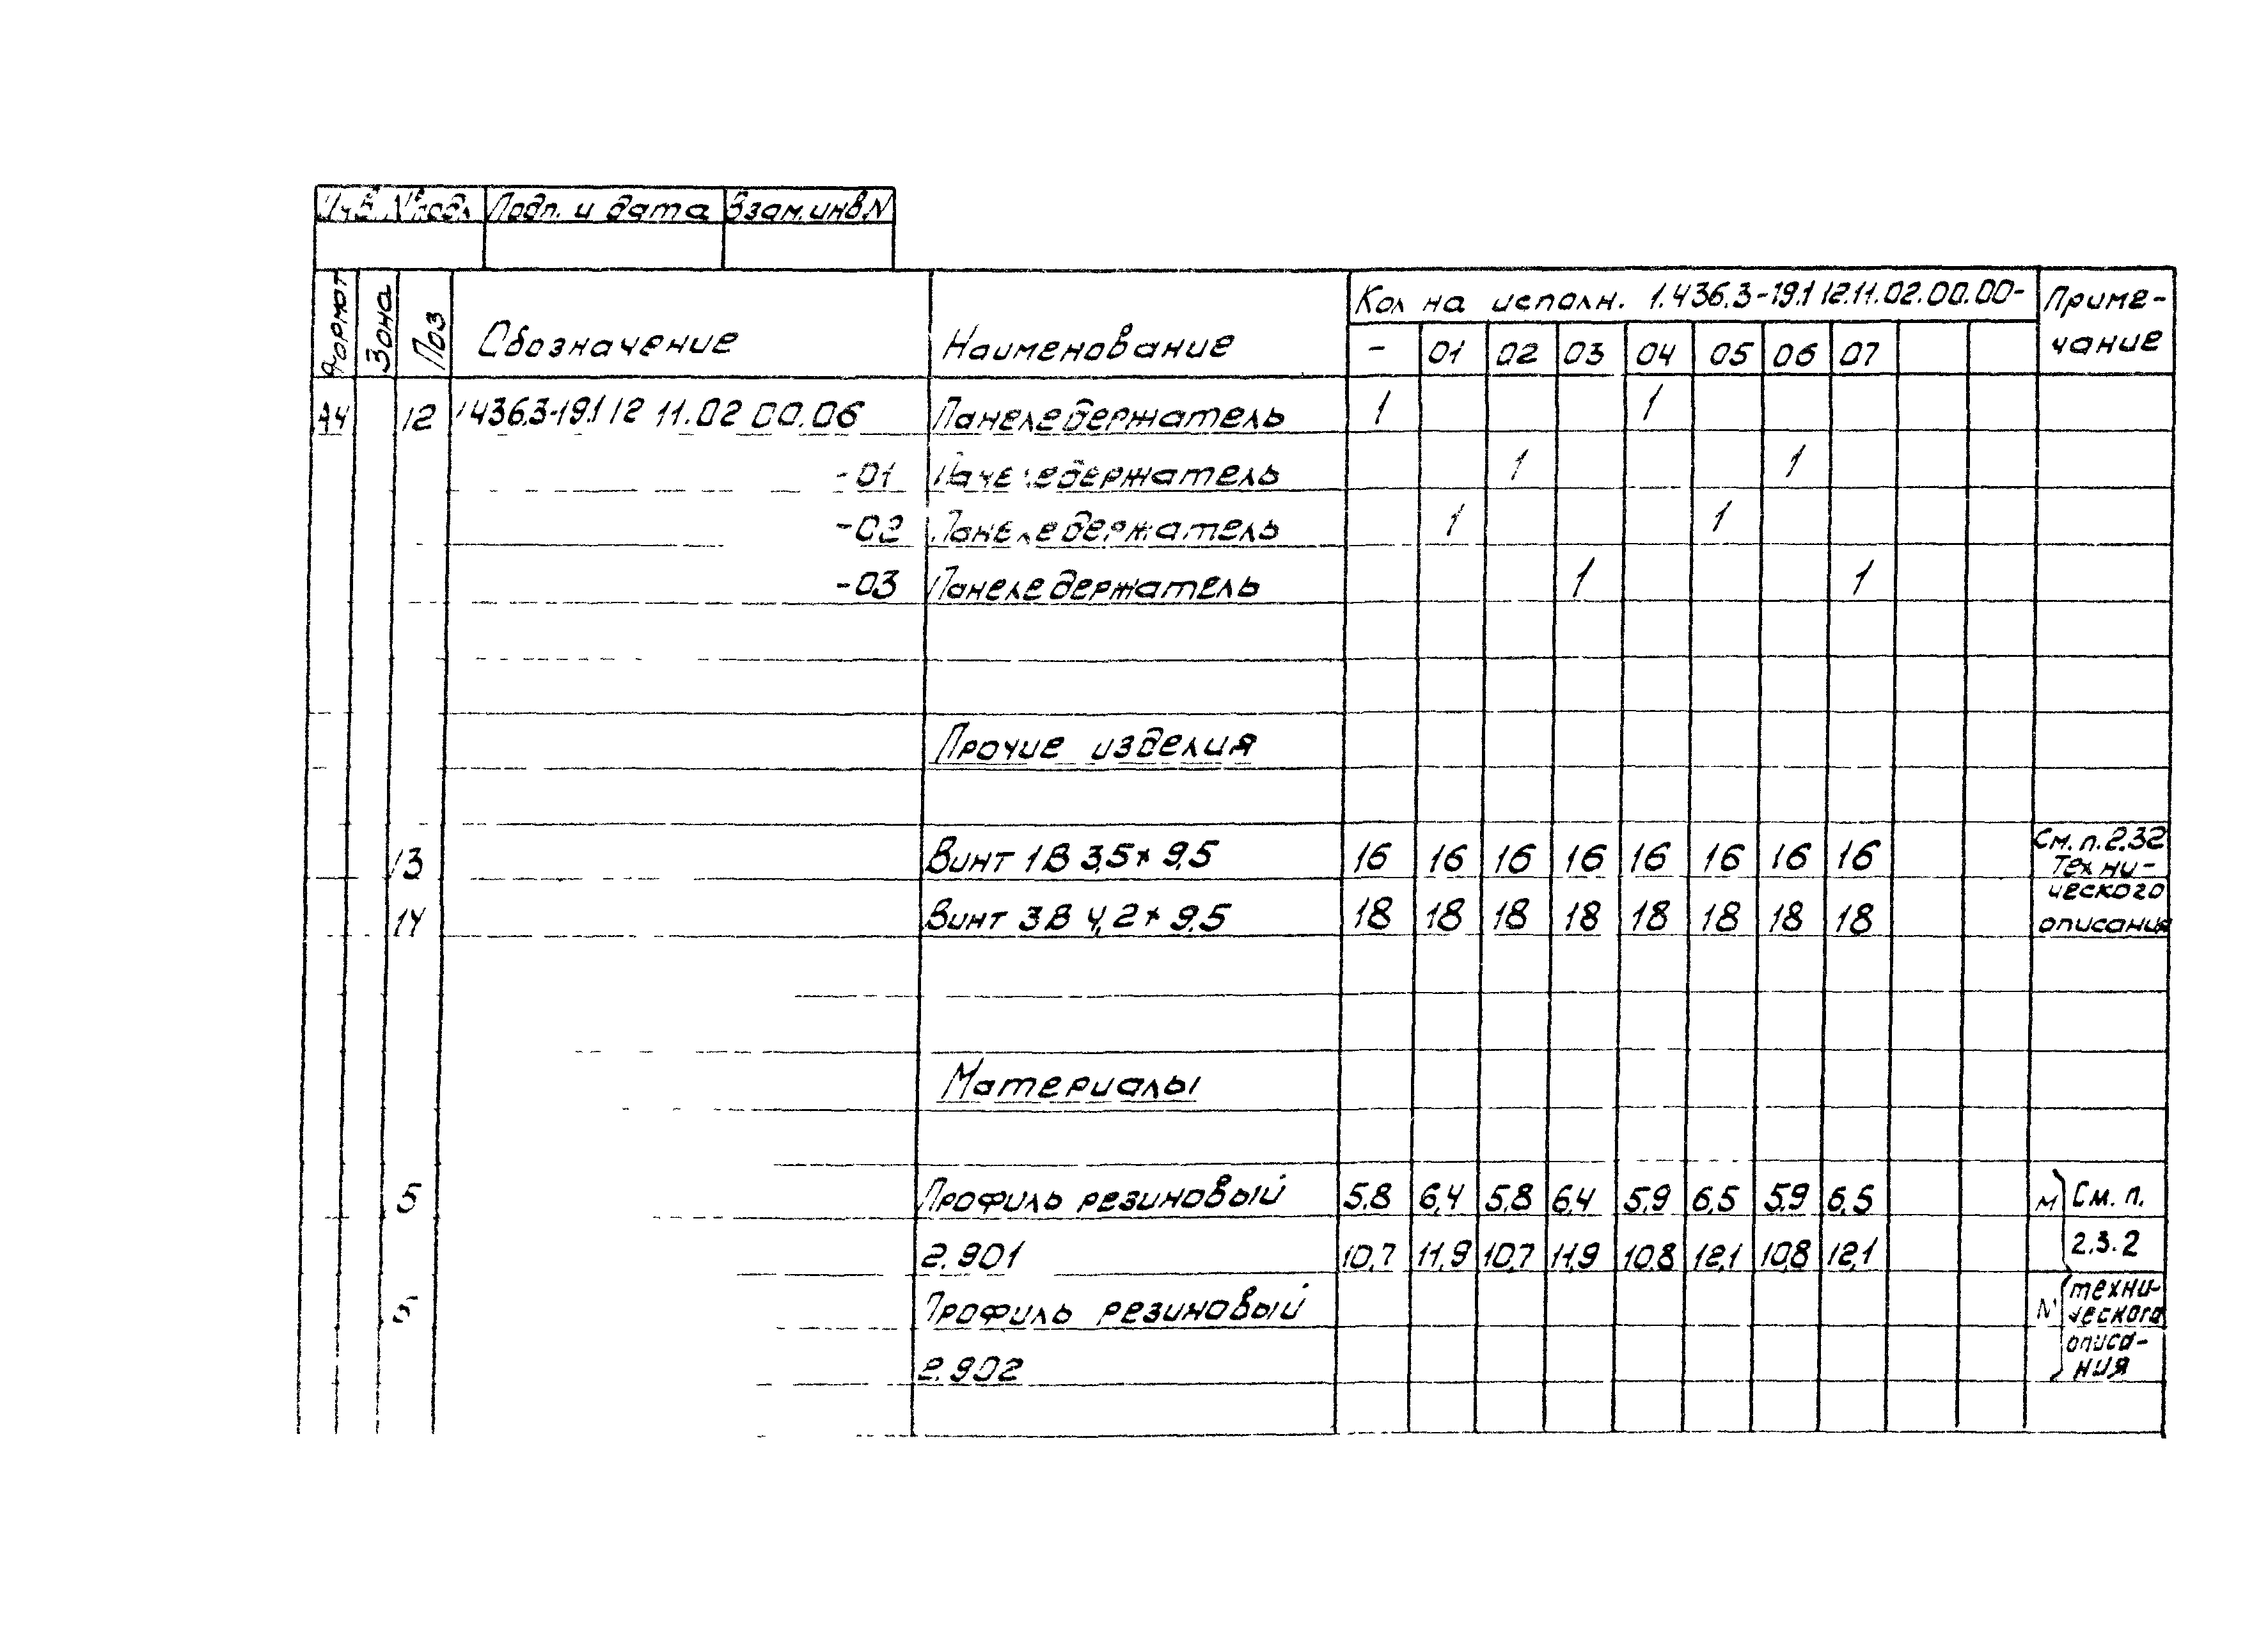 Инв. №подл Подп. и дата Взам.инв.N
Формат Зона Поз Обозначение Наименование Кол на исполн. 1.436.3-19.1 12.11.02.00.00- Приме-
чание
- 01 02 03 04 05 06 07
А4 12 1 436.3-19.1 12 11.02 00.06 Панеледержатель 1 1
-01 Панеледержатель 1 1
-02 Панеледержатель 1 1
-03 Панеледержатель 1 1
Прочие изделия
13 Винт 1В 3,5×9,5 16 16 16 16 16 16 16 16 См. п. 2.32
Техни-
ческого
14 Винт 3В 4,2×9,5 18 18 18 18 18 18 18 18 описания
Материалы
5 Профиль резиновый 5,8 6,4 5,8 6,4 5,9 6,5 5,9 6,5 М См. п.
2.901 10,7 11,9 10,7 11,9 10,8 12,1 10,8 12,1 2.3.2
Профиль резиновый техни-
ческого
2.902 описа-
ния